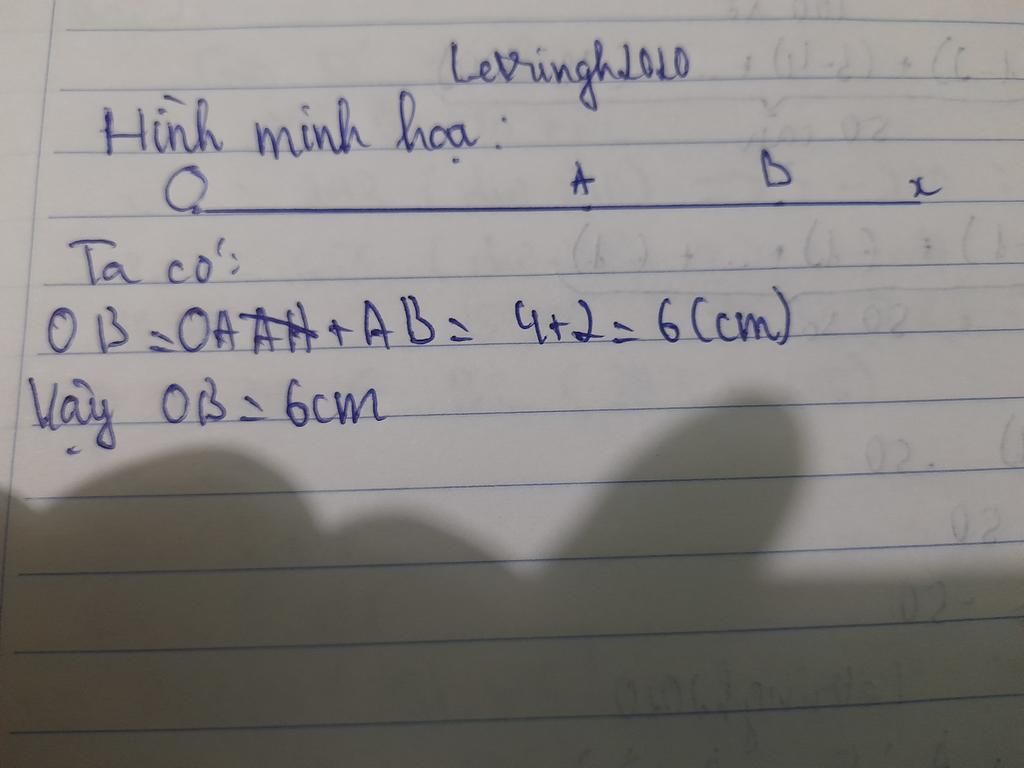 Levringh2010
Hình minh hoạ:
O A B x
Ta có:
OB = OA + AB = 4+2 = 6 (cm)
Vậy OB = 6cm